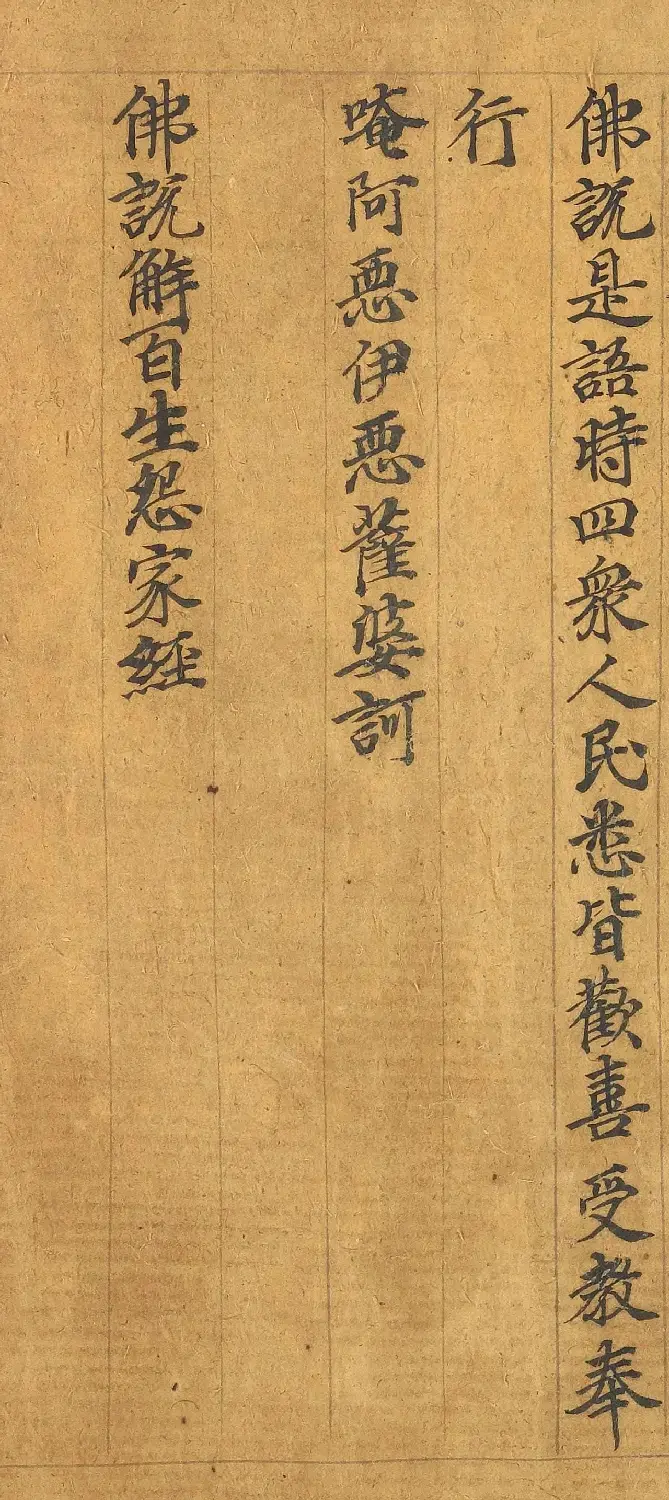 佛說是語時四衆人民悉皆歡喜受教奉
行
唵阿惡伊惡薩婆訶
佛說解百生怨家經